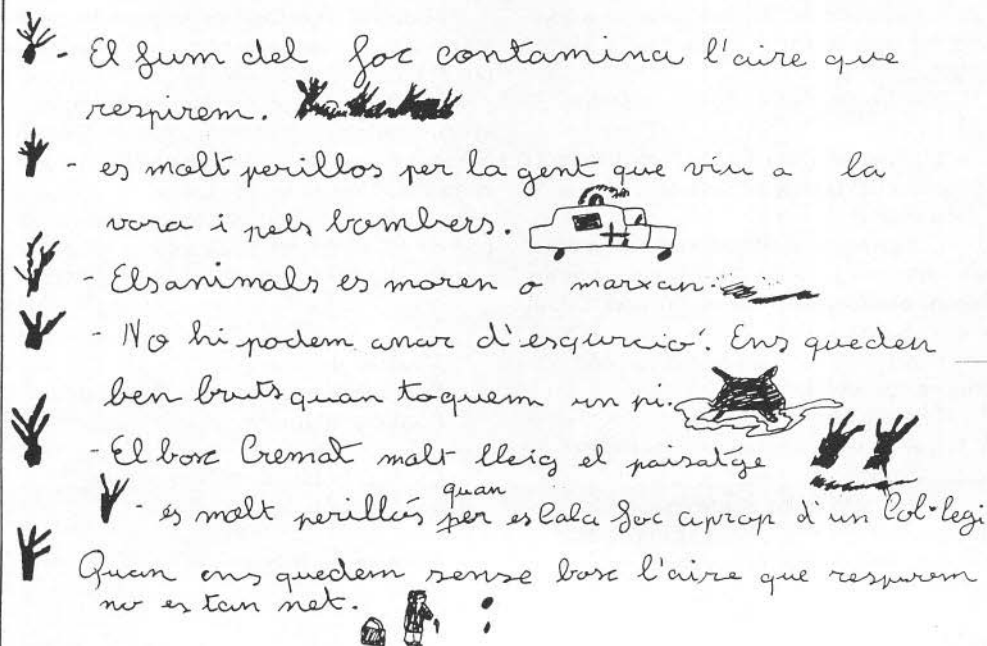 - El fum del foc contamina l'aire que
respirem.
- es molt perillos per la gent que viu a la
vora i pels bombers.
- Els animals es moren o marxan.
- No hi podem anar d'esqurció. Ens queden
ben bruts quan toquem un pi.
- El bosc Cremat malt lleig el paisatge
quan
- és molt perillós per es Cala foc aprop d'un Col·legi
Quan ens quedem sense bosc l'aire que respurem
no es tan net.